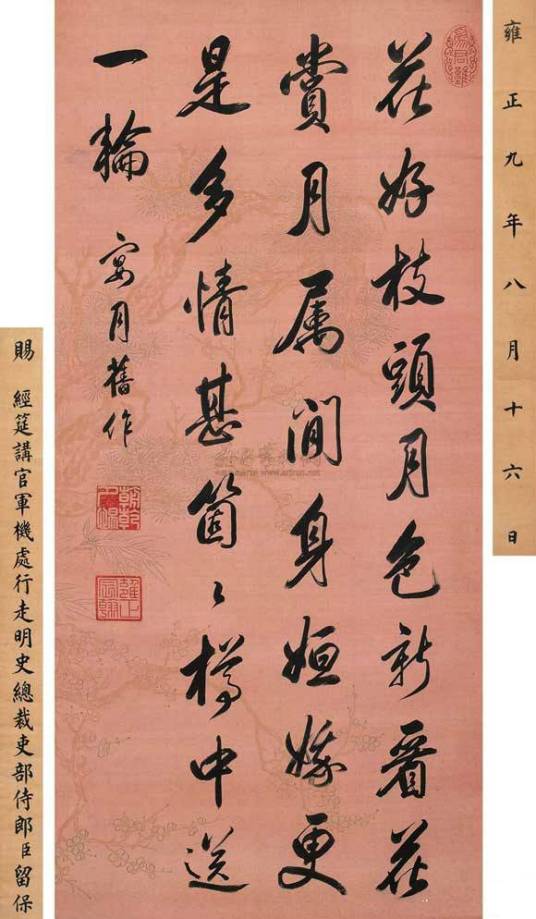 雍正九年八月十六日
花好枝頭月色新看花
賞月属閒身姮娥更
是多情甚箇〻樽中送
一輪
宴月舊作
朝乾夕惕
雍正宸翰
賜 經筵講官軍機處行走明史總裁吏部侍郎臣留保